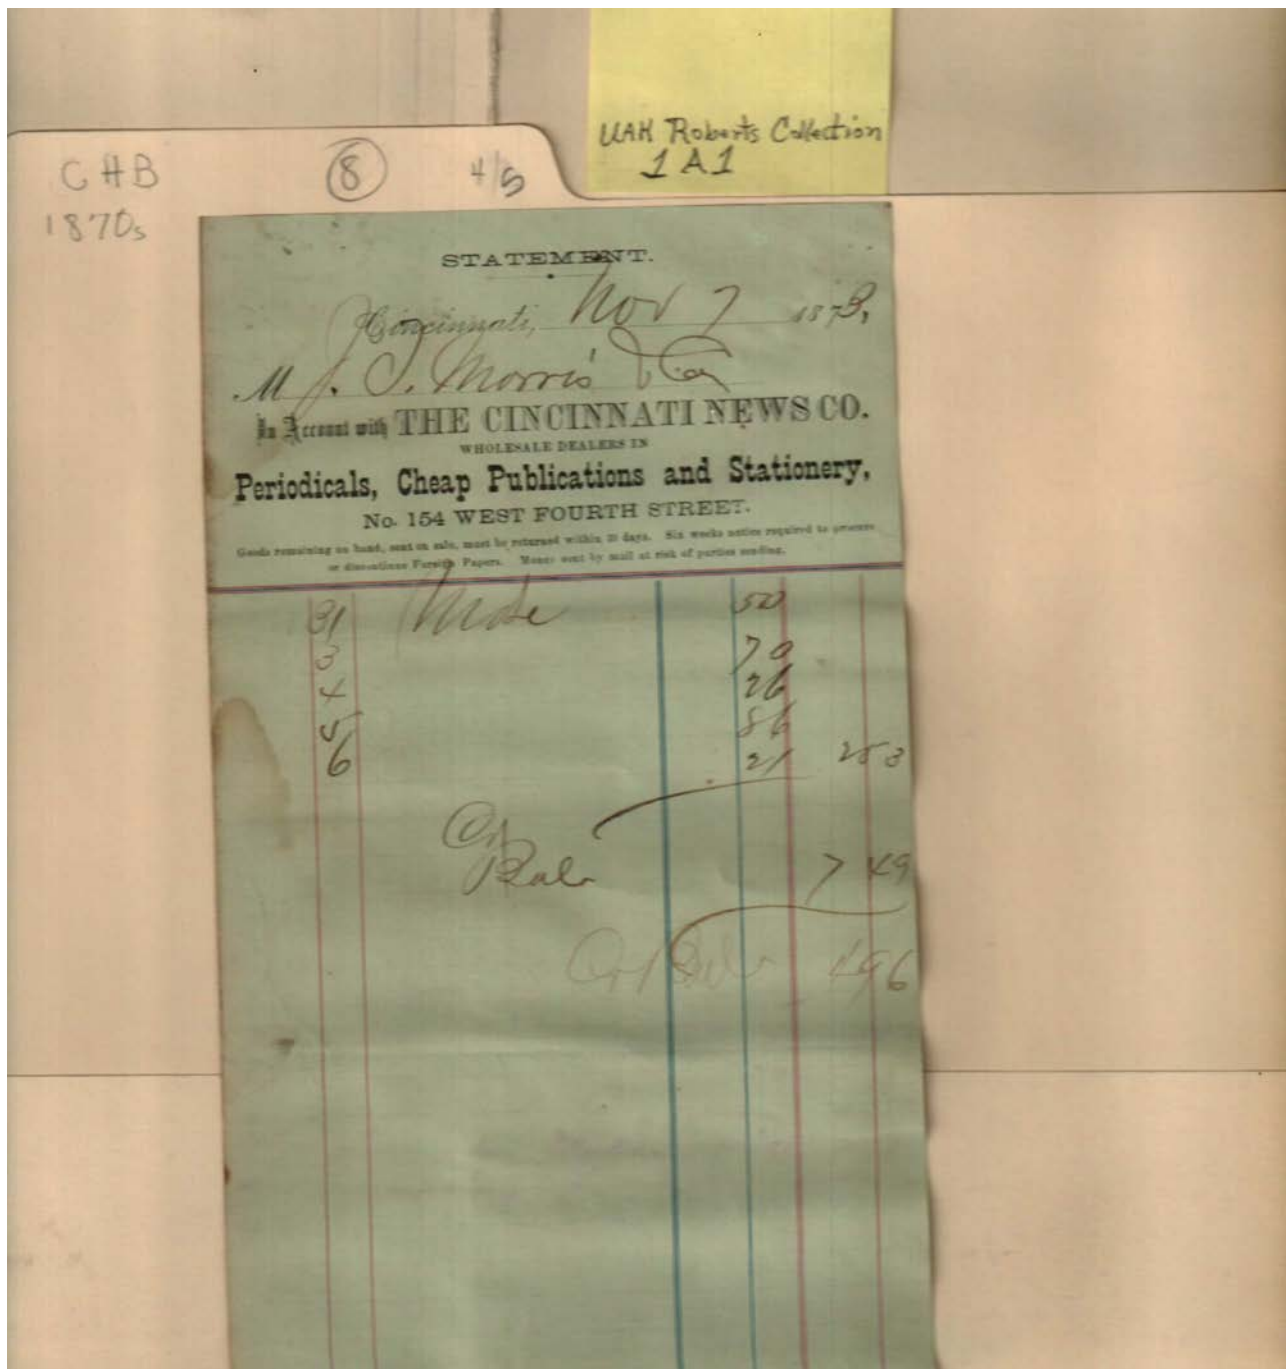 UAH Roberts Collection
1A1
CHB
8
4/5
1870s
STATEMENT.
Cincinnati, Nov 7 187
M J. T. Morris & Co
In Account with THE CINCINNATI NEWS CO.
WHOLESALE DEALERS IN
Periodicals, Cheap Publications and Stationery,
No. 154 WEST FOURTH STREET.
Goods remaining on hand, sent on sale, must be returned within 30 days. Six weeks notice required to procure
or discontinue Foreign Papers. Money sent by mail at risk of parties sending.
31 Mdse 50
3 70
4 26
5 86
6 21 253
Cr
Bal 7 49
Cr Bal 496